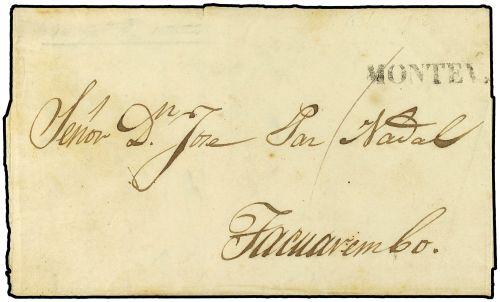 MONTEV.
Señor Dn. Jose Par Nadal
Tacuarembo.